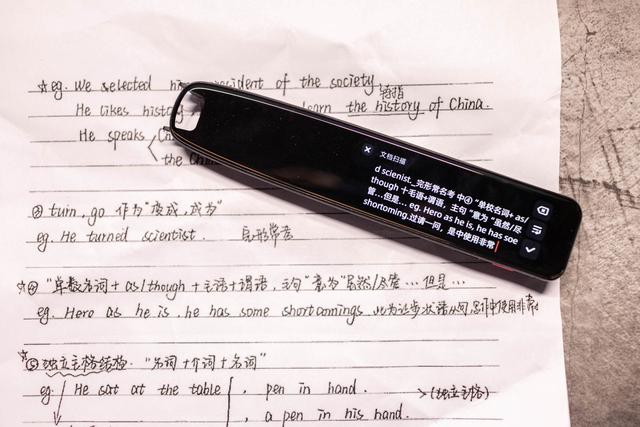 ☆eg. We selected his president of the society
He likes history learn the history of China.
特指
He speaks
the Chin
turn, go 作为"变成,成为"
eg. He turned scientist. 完形常考
☆④ "单数名词 + as/though + 主语+谓语, 主句"意为"虽然/尽管…但是…
eg. Hero as he is, he has some shortcomings 此为让步状语从句,写作中使用非常
☆⑤ 独立主格结构: "名词 + 介词 + 名词"
eg. He sat at the table , pen in hand. →(独立主格)
, a pen in his hand.
文档扫描
d scienist_完形常名考 中④ "单校名词+ as/
though 十毛语+谓语, 主句 "意为 "虽然/尽
管...但是... eg. Hero as he is, he has soe
shortoming.过请一问, 是中使用非常